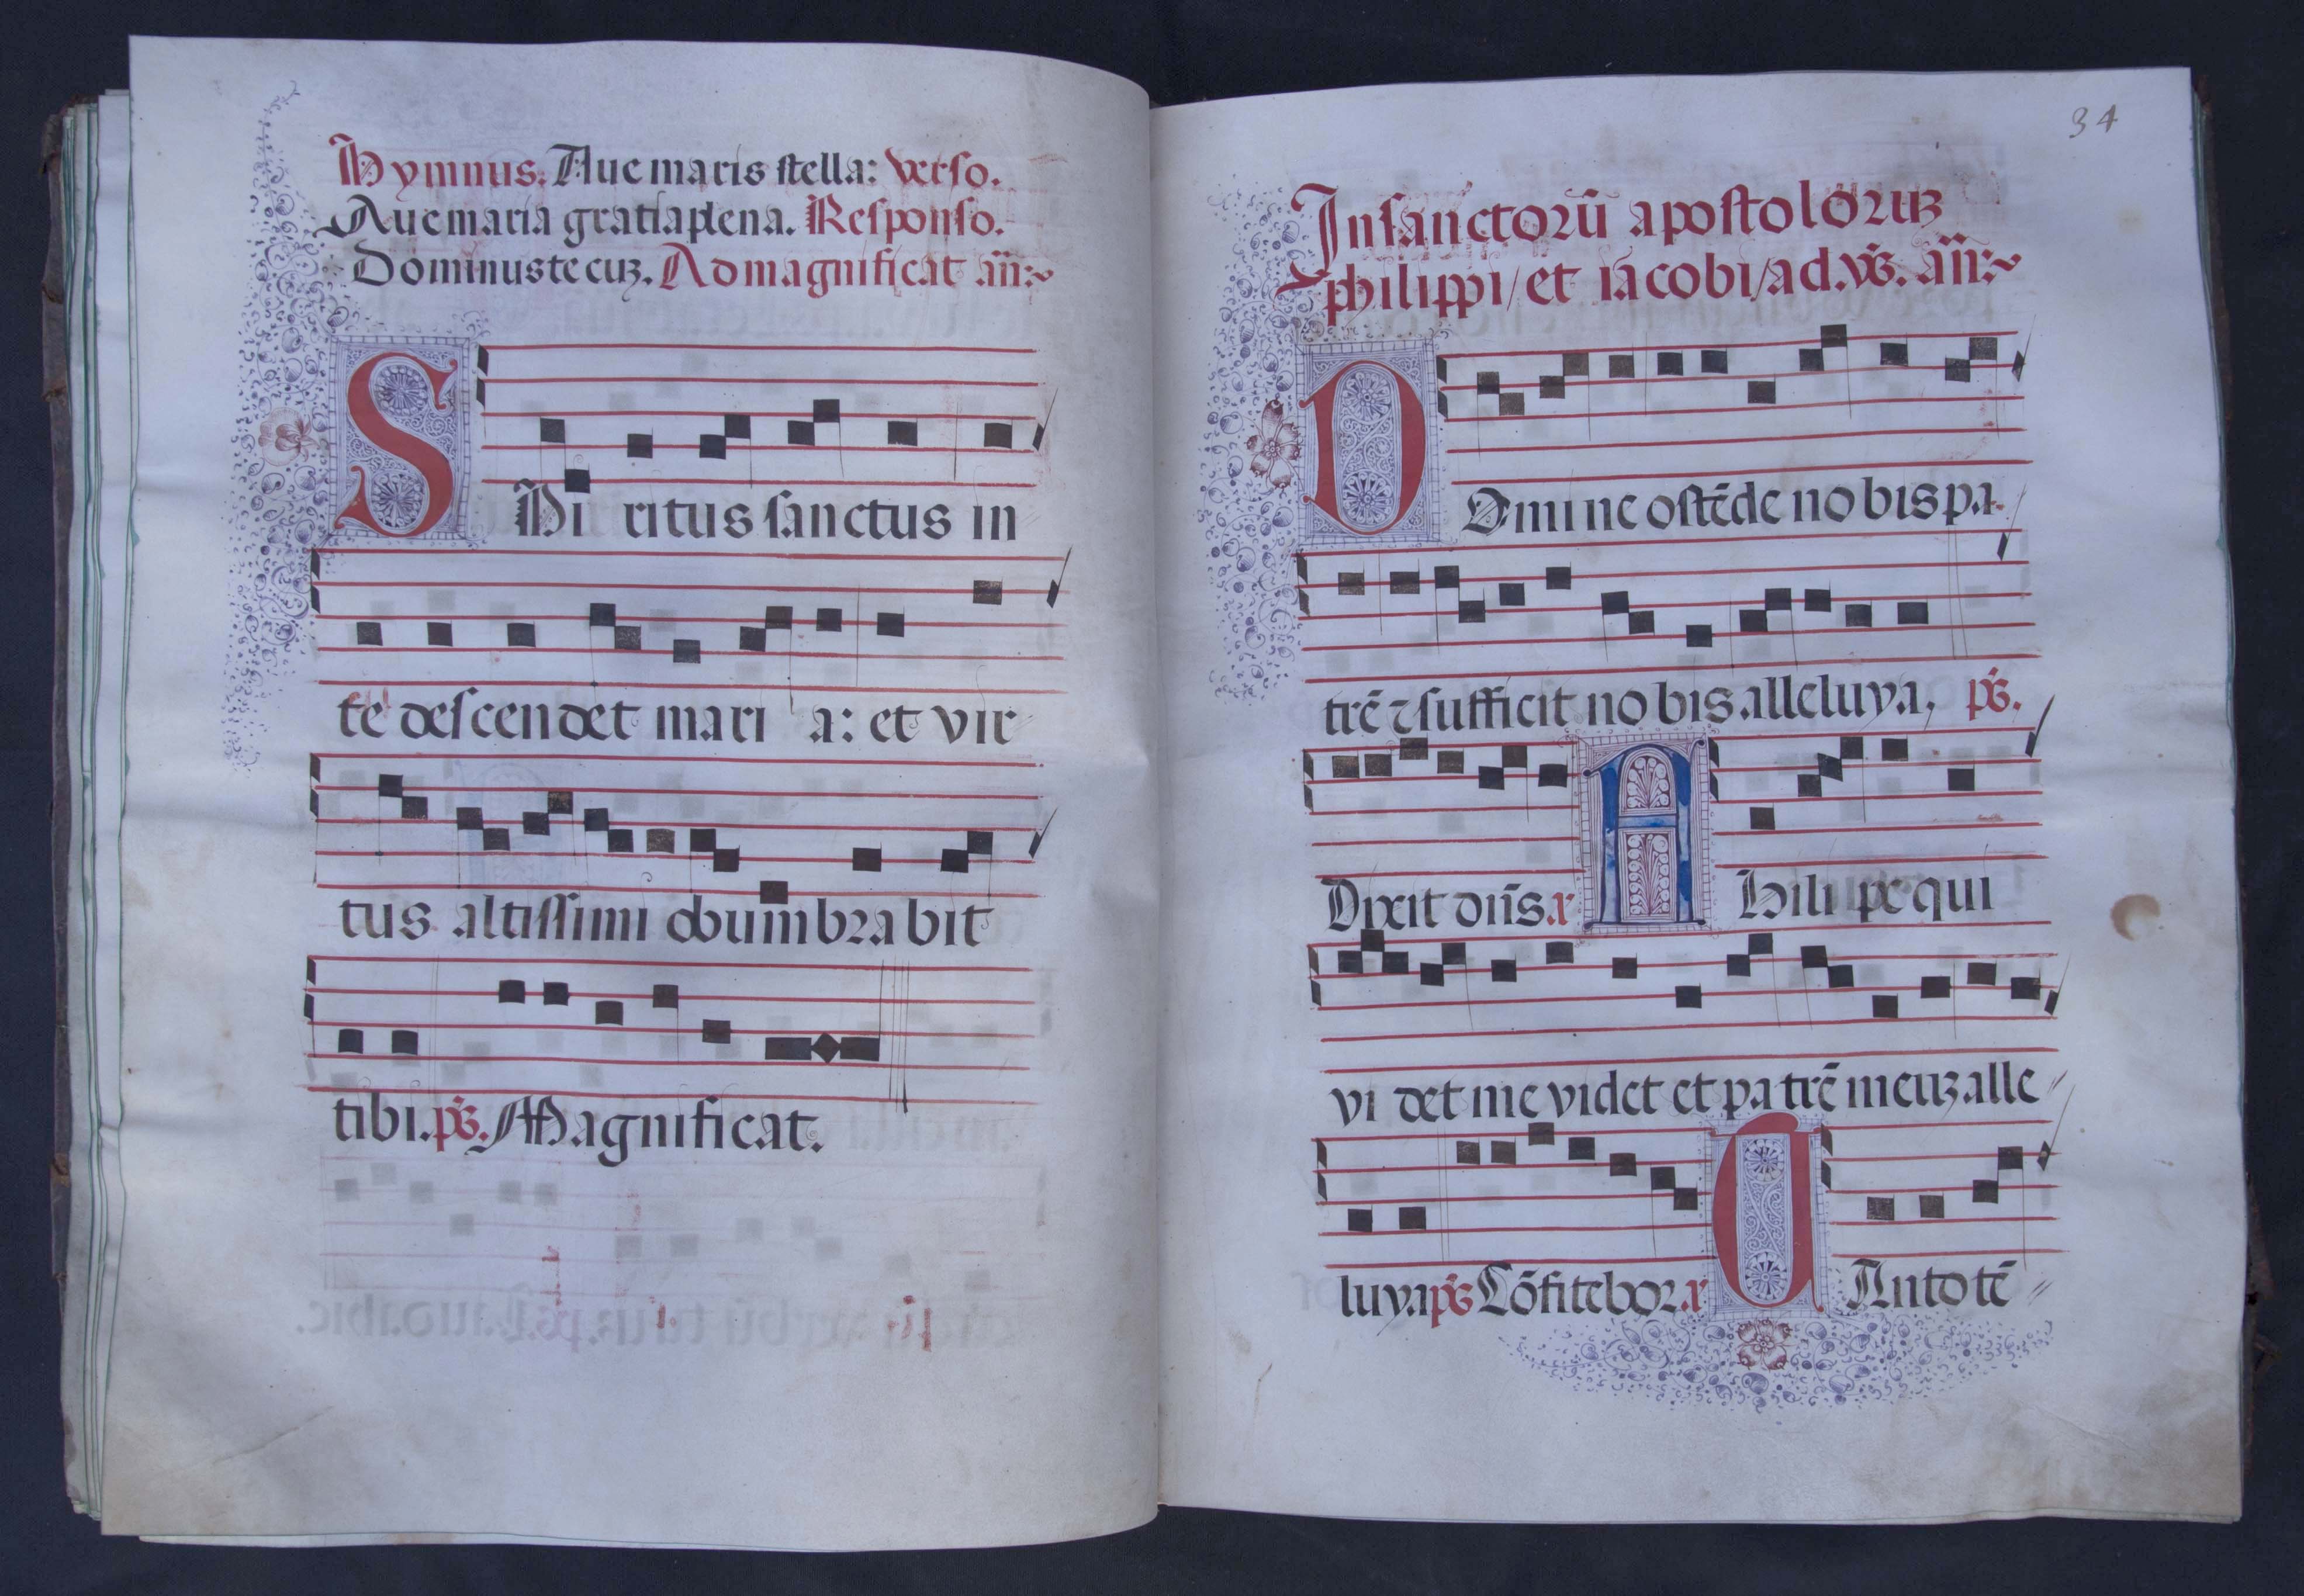 Hymnus. Aue maris stella: verso.
Aue maria gratia plena. Responso.
Dominus te cuȝ. Ad magnificat an̄:~
S Pi ritus sanctus in
te descendet mari a: et vir
tus altissimi obumbra bit
tibi. ps̄. Magnificat.
34
In sanctorū apostoloruȝ
philippi/ et iacobi/ ad. vs̄. an̄:~
D Omine ostēde nobis pa.
trē ⁊ sufficit nobis alleluya, ps̄.
Dixit dn̄s. P Hili pe qui
vi det me videt et patrē meuȝ alle
luya ps̄ Cōfitebor. T Anto tē